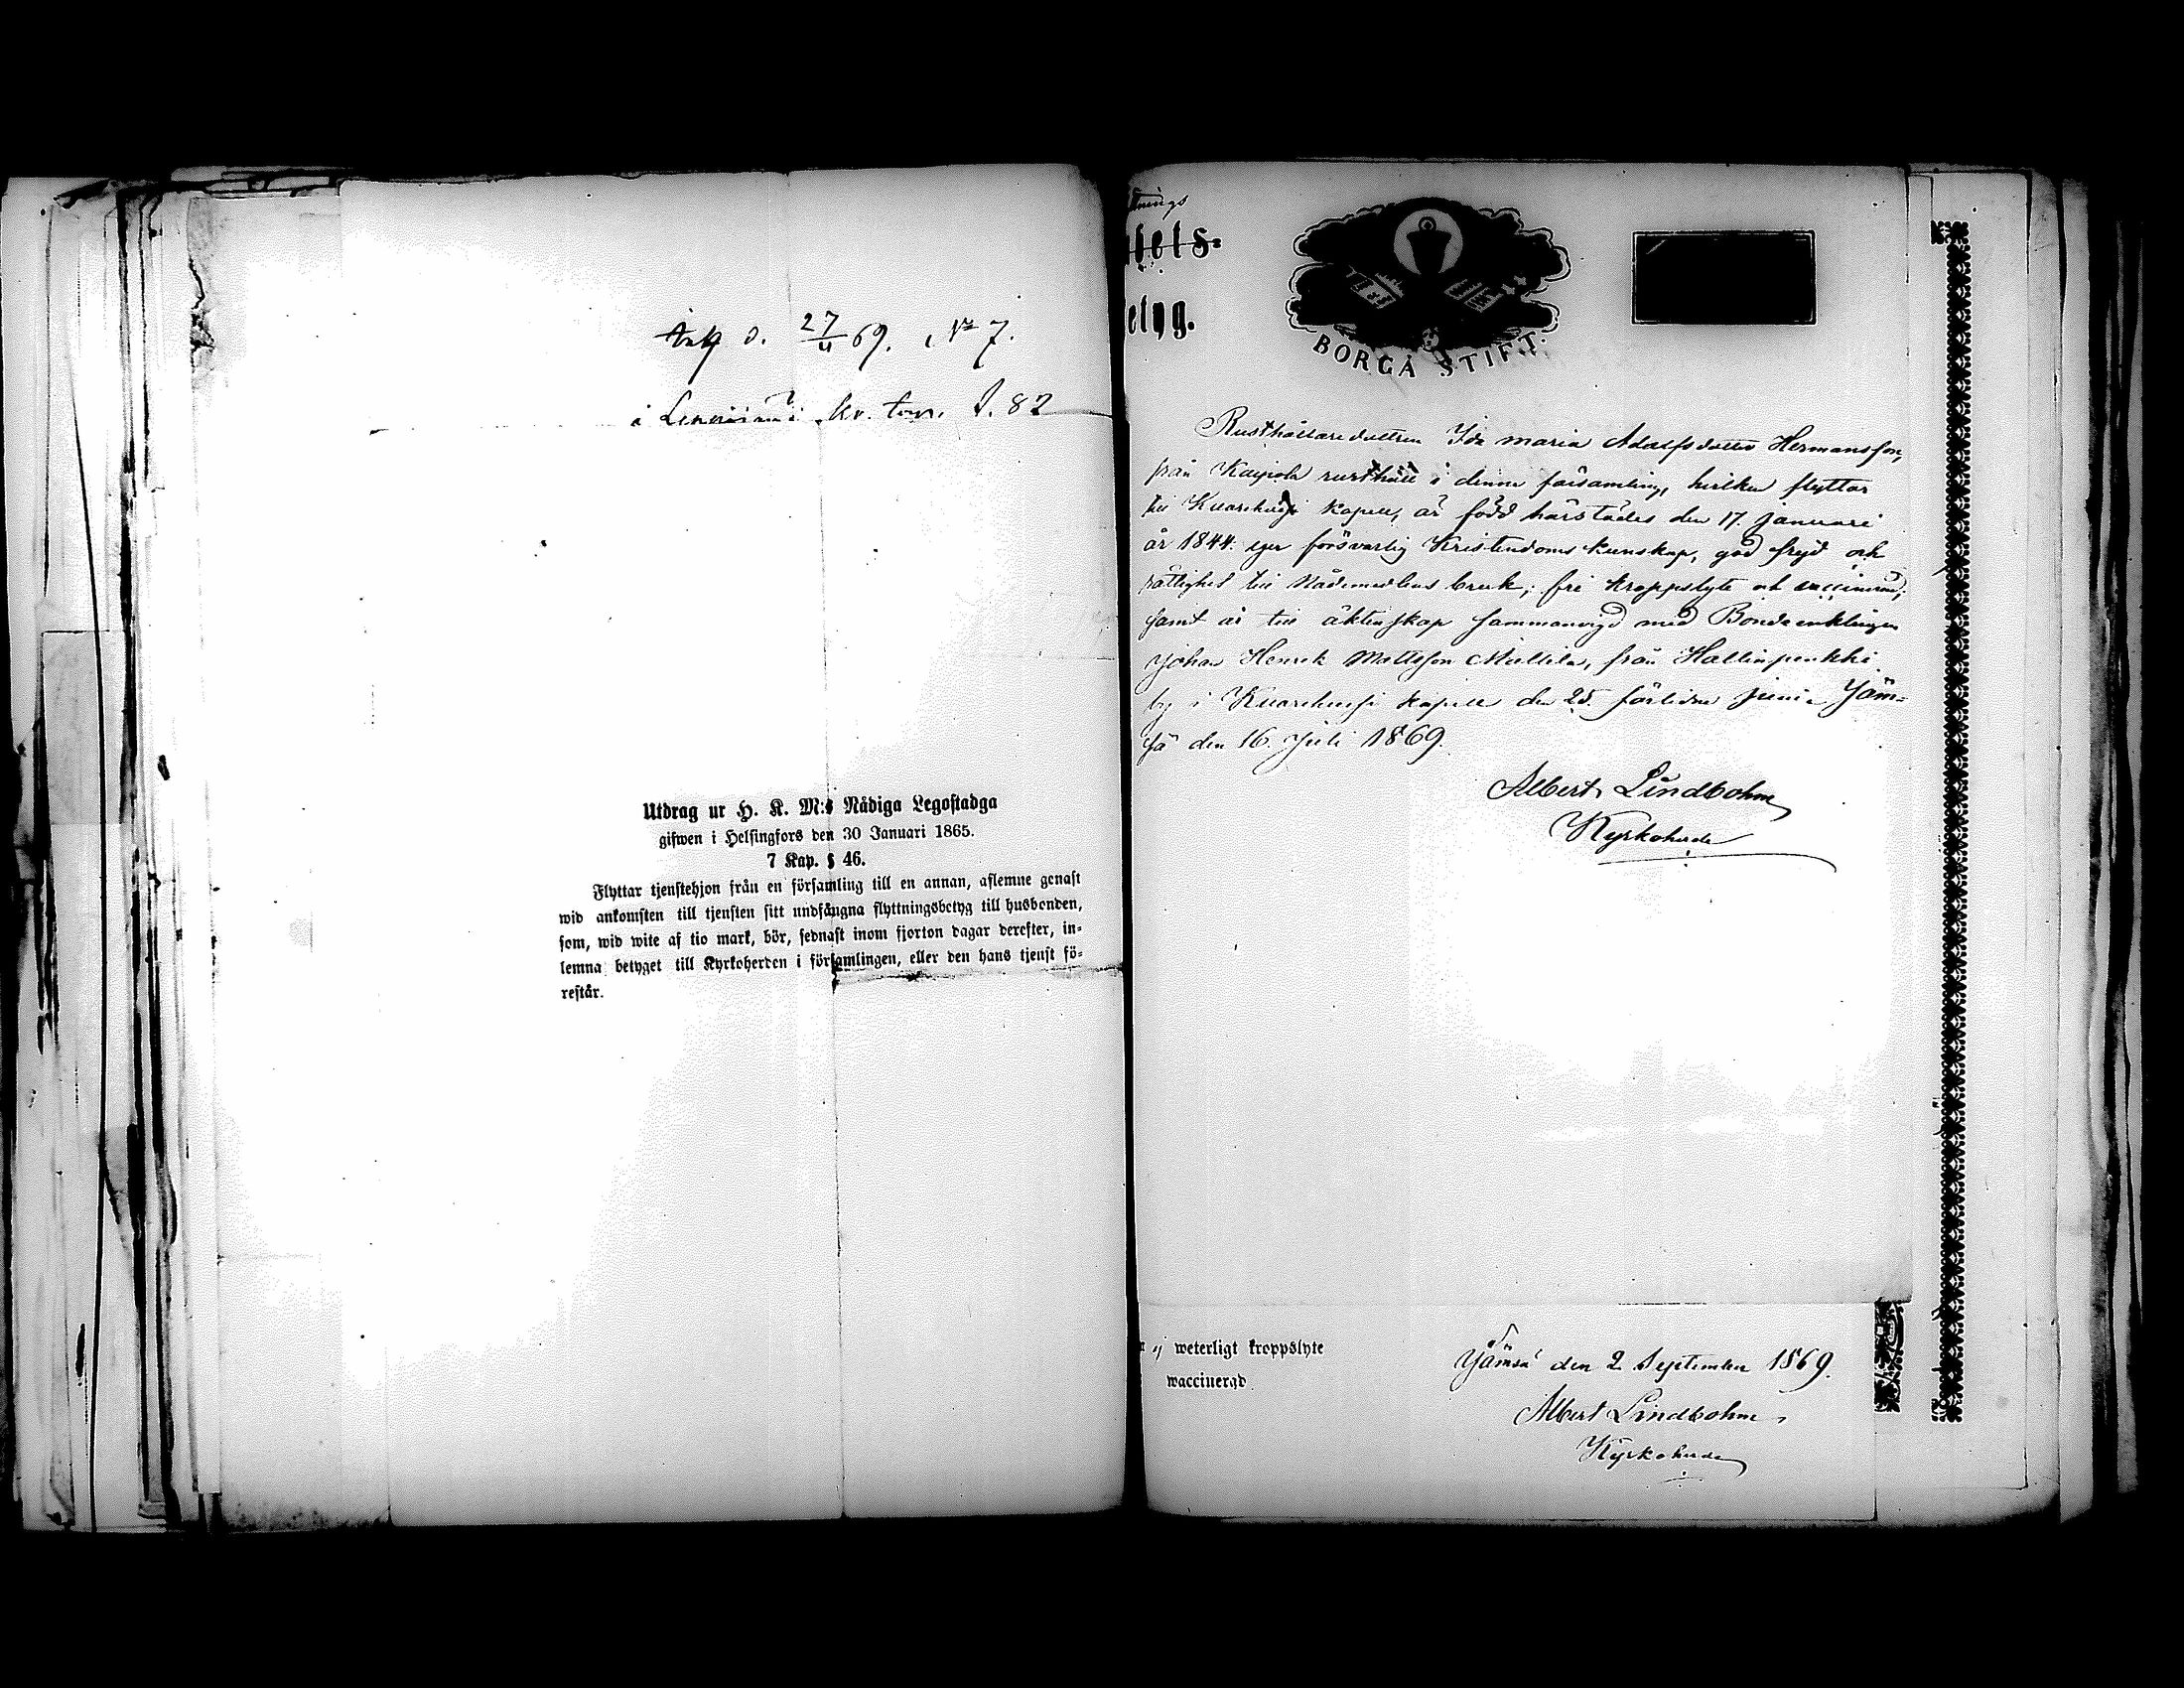 Ank d. 27/11 69. No 7.
i kv. tom. I. 82
Utdrag ur H. K. M:s Nådiga Legostadga
gifwen i Helsingfors den 30 Januari 1865.
7 Kap. § 46.
Flyttar tjenstehjon från en församling till en annan, aflemne genast
wid ankomsten till tjensten sitt undfångna flyttningsbetyg till husbonden,
som, wid wite af tio mark, bör, sednast inom fjorton dagar derefter, in-
lemna betyget till Kyrkoherden i församlingen, eller den hans tjenst fö-
restår.
tnings
fets-
etyg.
BORGÅ STIFT.
Rusthållaredottren Ida Maria Adolfsdotter Hermansson,
från rusthåll i denna församling, hvilken flyttar
till Kuorehvesi kapell, är född härstädes den 17. Januari
år 1844. eger försvarlig Kristendoms kunskap, god frejd och
rättighet till Nådemedlens bruk; fri kroppslyte och vaccinerad;
samt är till äktenskap sammanvigd med Bondeenklingen
Johan Henrik Mattsson Mattila, från Hallinpenkki
by i Kuorehvesi kapell den 25. förlidne Juni. Jäm-
sä den 16. Juli 1869.
Albert Lindbohm
Kyrkoherde
ej weterligt kroppslyte
waccinerad
Jämsä den 2 September 1869.
Albert Lindbohm
Kyrkoherde